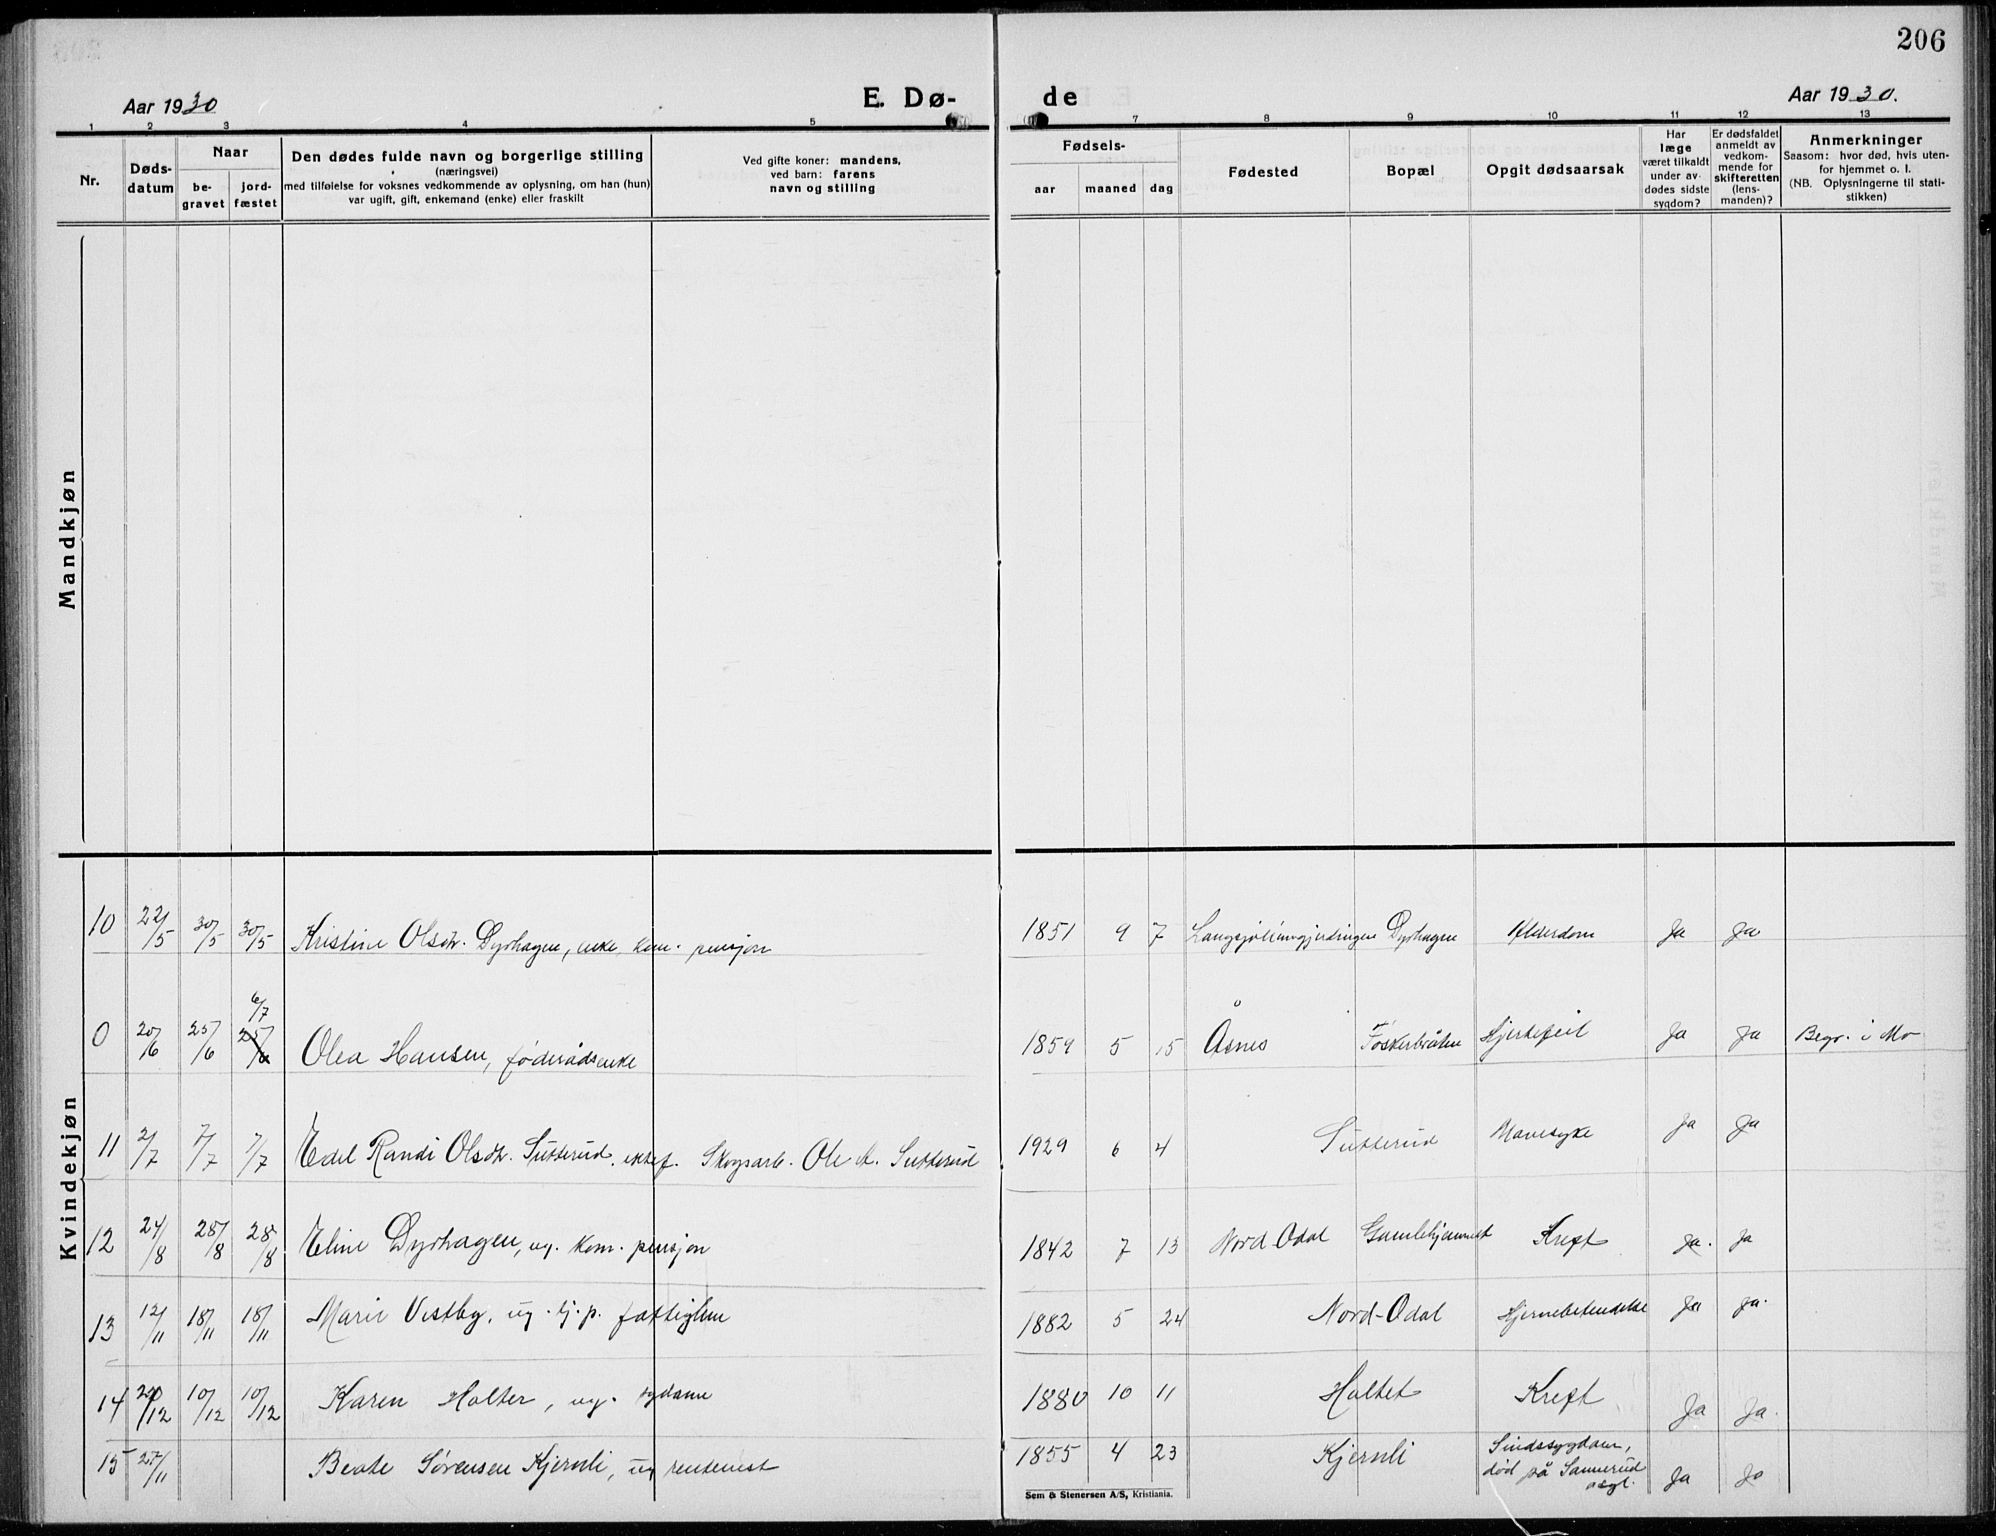 206
Aar 1930
E. Dø-
de
Aar 1930.
1 2 3 4 5 7 8 9 10 11 12 13
Nr.
Døds-
datum
Naar
be-
gravet
jord-
fæstet
Den dødes fulde navn og borgerlige stilling
(næringsvei)
med tilføielse for voksnes vedkommende av oplysning, om han (hun)
var ugift, gift, enkemand (enke) eller fraskilt
Ved gifte koner: mandens,
ved barn: farens
navn og stilling
Fødsels-
aar maaned dag
Fødested
Bopæl
Opgit dødsaarsak
Har
læge
været tilkaldt
under av-
dødes sidste
sygdom?
Er dødsfaldet
anmeldt av
vedkom-
mende for
skifteretten
(lens-
manden)?
Anmerkninger
Saasom: hvor død, hvis uten-
for hjemmet o. l.
(NB. Oplysningerne til stati-
stikken)
Mandkjøn
Kvindekjøn
10 22/5 30/5 30/5 Kristine Olsdtr. Dyrhagen, enke, kom. pensjon 1851 9 7 Dyrhagen Alderdom Ja Ja
6/7
0 20/6 25/6 25/6 Olea Hansen, føderådsenke 1859 5 15 Åsnes Føskerbråten Hjertefeil Ja Ja Begr. i Mo
11 2/7 7/7 7/7 Edel Randi Olsdtr. Sutterud, ektef. Skogsarb. Ole A. Sutterud 1929 6 4 Sutterud Mavesyke Ja Ja
12 24/8 28/8 28/8 Eline Dyrhagen, ug. kom. pensjon 1842 7 13 Nord Odal Gamlehjemmet Kreft Ja. Ja
13 12/11 18/11 18/11 Marie Vestby, ug. tj.p. fattiglem 1882 5 24 Nord-Odal Hjernebetendelse Ja Ja.
14 20/12 10/12 10/12 Karen Holter, ug. sydame 1880 10 11 Holtet Kreft Ja Ja.
15 27/11 Beate Sørensen Kjernli, ug rentenist 1855 4 23 Kjernli Sindssygdom,
død på Sannerud
asyl. Ja Ja
Sem & Stenersen A/S, Kristiania.